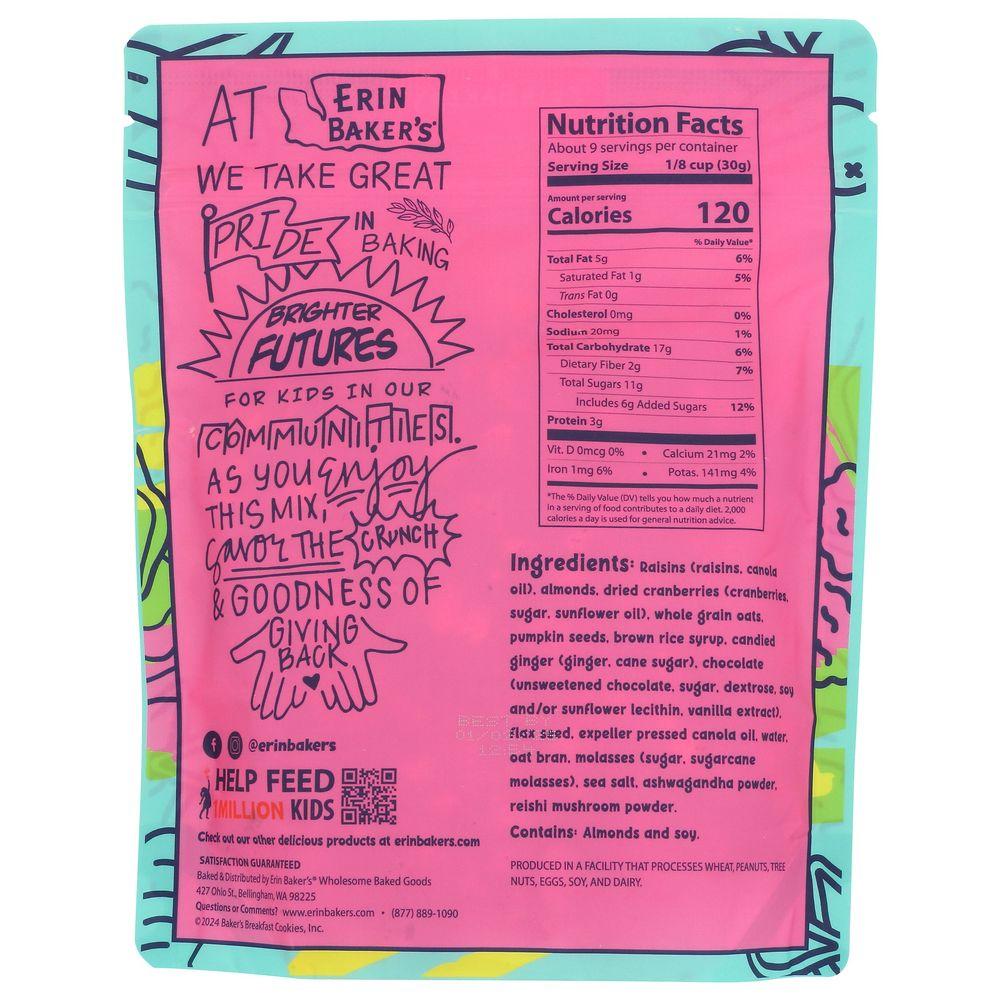 AT ERIN BAKER'S®
WE TAKE GREAT
PRIDE IN BAKING
BRIGHTER
FUTURES
FOR KIDS IN OUR
COMMUNITIES.
AS YOU enjoy
THIS MIX,
savor THE CRUNCH
& GOODNESS OF
GIVING
BACK
@erinbakers
HELP FEED
1MILLION KIDS
Check out our other delicious products at erinbakers.com
SATISFACTION GUARANTEED
Baked & Distributed by Erin Baker's® Wholesome Baked Goods
427 Ohio St., Bellingham, WA 98225
Questions or Comments? www.erinbakers.com • (877) 889-1090
©2024 Baker's Breakfast Cookies, Inc.
Nutrition Facts
About 9 servings per container
Serving Size 1/8 cup (30g)
Amount per serving
Calories 120
% Daily Value*
Total Fat 5g 6%
Saturated Fat 1g 5%
Trans Fat 0g
Cholesterol 0mg 0%
Sodium 20mg 1%
Total Carbohydrate 17g 6%
Dietary Fiber 2g 7%
Total Sugars 11g
Includes 6g Added Sugars 12%
Protein 3g
Vit. D 0mcg 0% • Calcium 21mg 2%
Iron 1mg 6% • Potas. 141mg 4%
*The % Daily Value (DV) tells you how much a nutrient
in a serving of food contributes to a daily diet. 2,000
calories a day is used for general nutrition advice.
Ingredients: Raisins (raisins, canola
oil), almonds, dried cranberries (cranberries,
sugar, sunflower oil), whole grain oats,
pumpkin seeds, brown rice syrup, candied
ginger (ginger, cane sugar), chocolate
(unsweetened chocolate, sugar, dextrose, soy
and/or sunflower lecithin, vanilla extract),
flax seed, expeller pressed canola oil, water,
oat bran, molasses (sugar, sugarcane
molasses), sea salt, ashwagandha powder,
reishi mushroom powder.
Contains: Almonds and soy.
PRODUCED IN A FACILITY THAT PROCESSES WHEAT, PEANUTS, TREE
NUTS, EGGS, SOY, AND DAIRY.
BEST BY